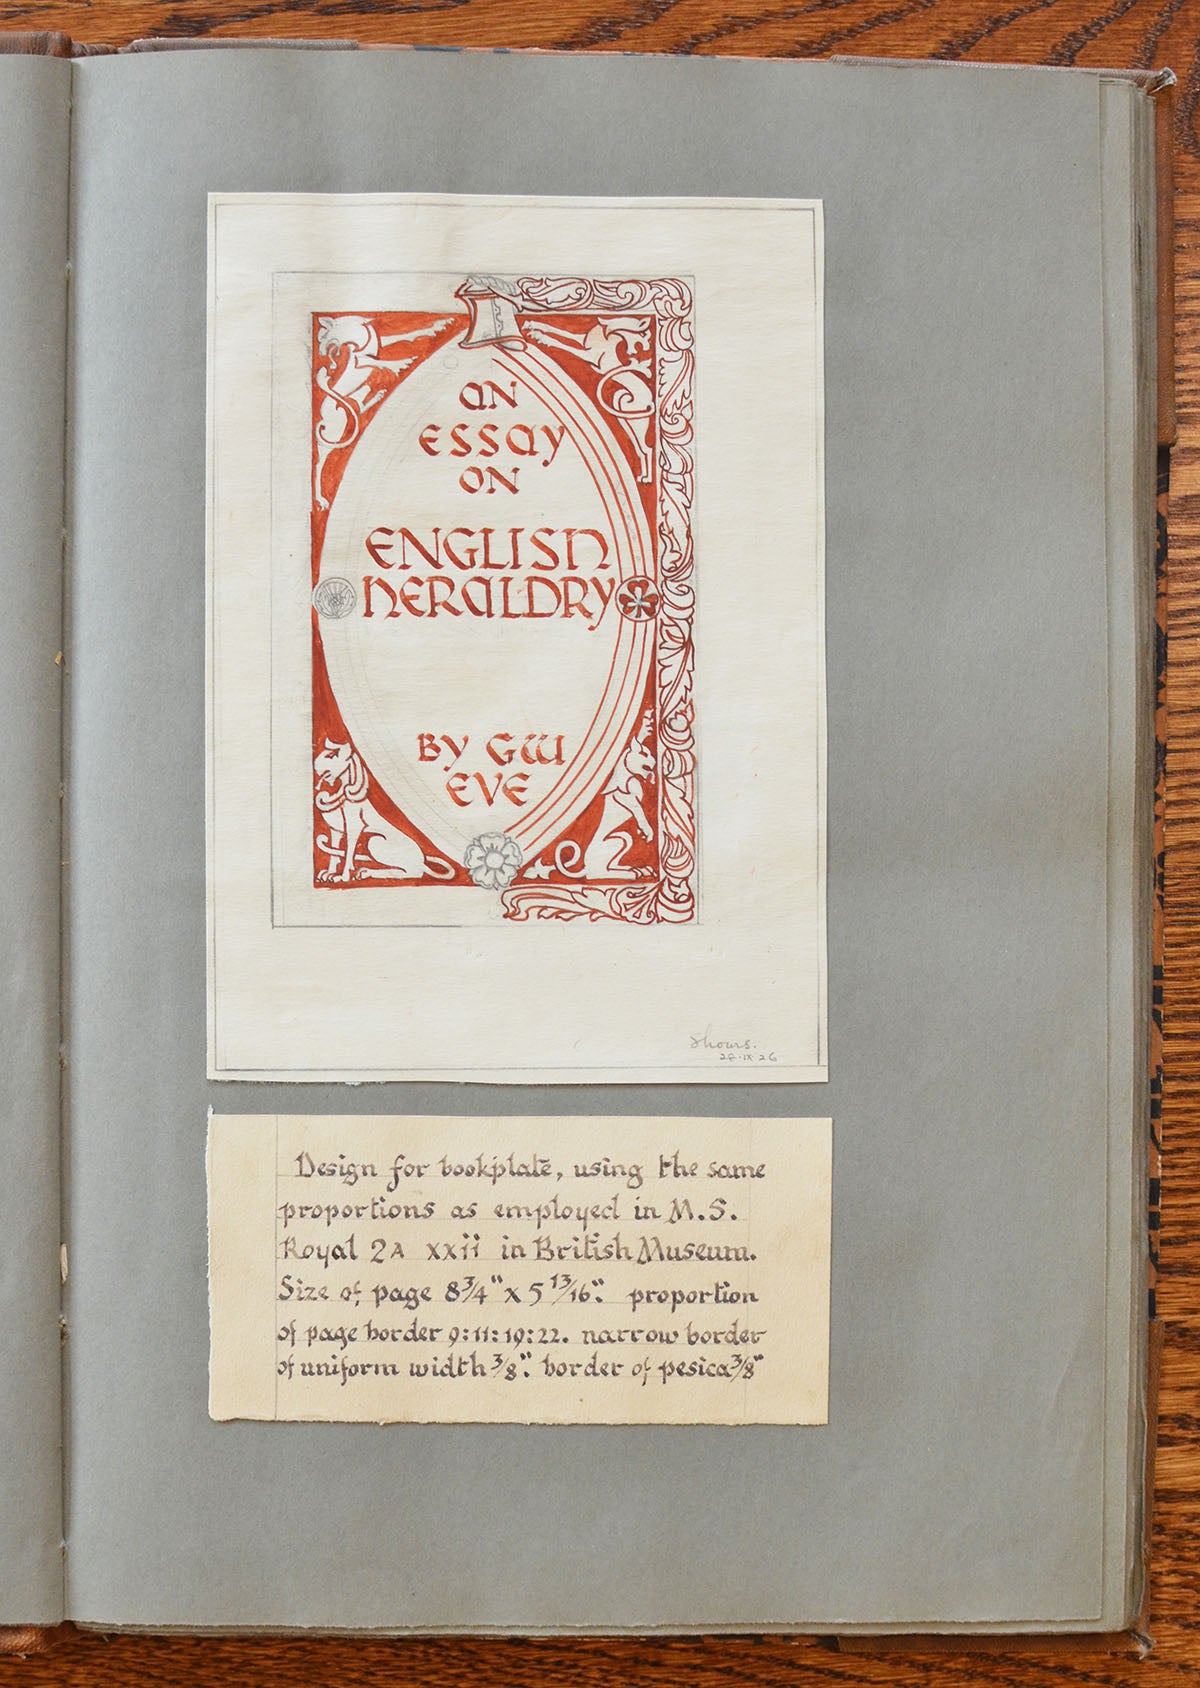 an
essay
on
English
Heraldry
By G W
Eve
8 hours.
28·IX·26
Design for bookplate, using the same
proportions as employed in M.S.
Royal 2A xxii in British Museum.
Size of page 8 3/4" x 5 13/16". proportion
of page border 9:11:19:22. narrow border
of uniform width 3/8". border of pesica 3/8"